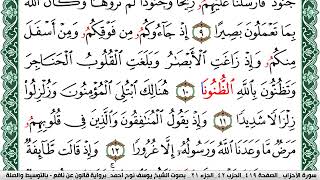 جُنُودٌ فَأَرْسَلْنَا عَلَيْهِمْ رِيحًا وَجُنُودًا لَّمْ تَرَوْهَا وَكَانَ اللَّهُ
بِمَا تَعْمَلُونَ بَصِيرًا ٩ إِذْ جَآءُوكُمُ مِّن فَوْقِكُمُ وَمِنْ أَسْفَلَ
مِنكُمُ وَإِذْ زَاغَتِ الْأَبْصَٰرُ وَبَلَغَتِ الْقُلُوبُ الْحَنَاجِرَ
وَتَظُنُّونَ بِاللَّهِ الظُّنُونَا ١٠ هُنَالِكَ ابْتُلِيَ الْمُؤْمِنُونَ وَزُلْزِلُوا
زِلْزَالًا شَدِيدًا ١١ وَإِذْ يَقُولُ الْمُنَٰفِقُونَ وَالَّذِينَ فِي قُلُوبِهِمُ
مَرَضٌ مَّا وَعَدَنَا اللَّهُ وَرَسُولُهُ إِلَّا غُرُورًا ١٢ وَإِذْ قَالَت طَّآئِفَةٌ
سورة الأحزاب - الصفحة ٤١٩ - الحزب ٤٢ - الجزء ٢١ - بصوت الشيخ يوسف نوح أحمد - برواية قالون عن نافع - بالتوسيط والصلة